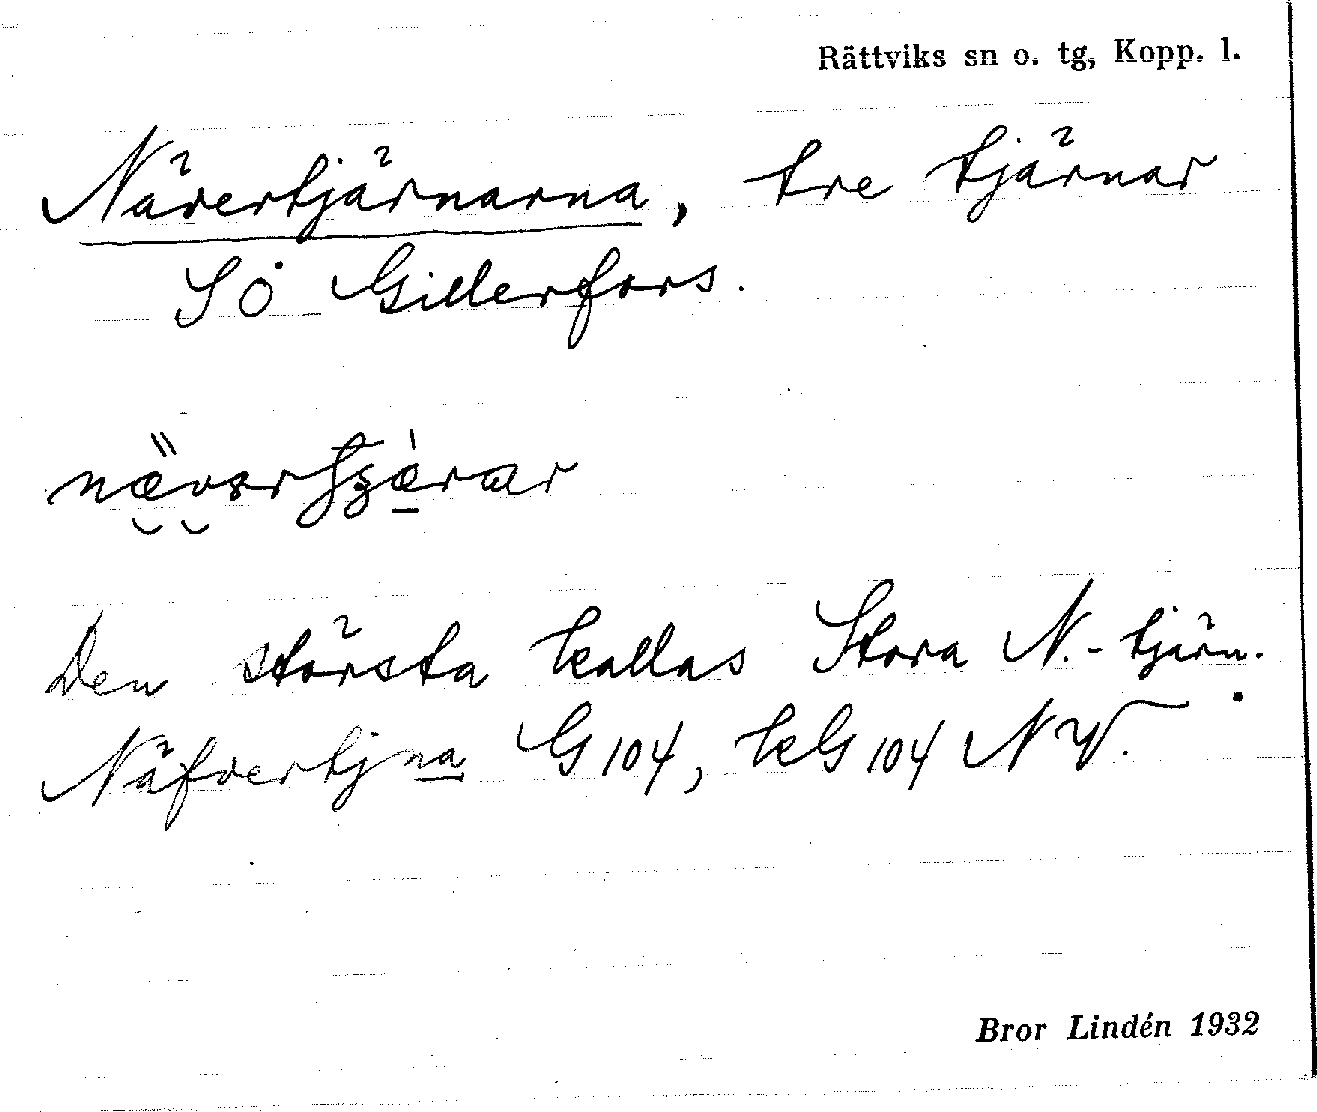 Rättviks sn o. tg, Kopp. l.
Nävertjärnarna, tre tjärnar
SÖ Gillerfors.
Den största kallas Stora N.-tjärn.
Näfvertjna G 104, kG 104 NV.
Bror Lindén 1932